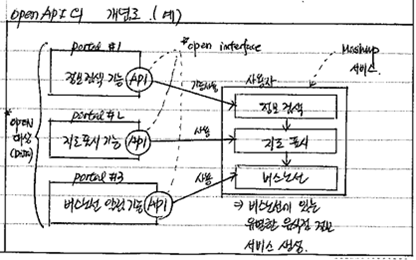 open API의 개념도. (예)
portal #1
*open interface
정보검색 기능 API
기능사용
사용자
Mashup
서비스.
정보 검색
portal #2
*open
대상
(Data)
지도표시 기능 API
사용
지도 표시
portal #3
버스노선 안내 기능 API
사용
버스노선
⇒ 버스노선에 있는
유명한 음식점 정보
서비스 생성.